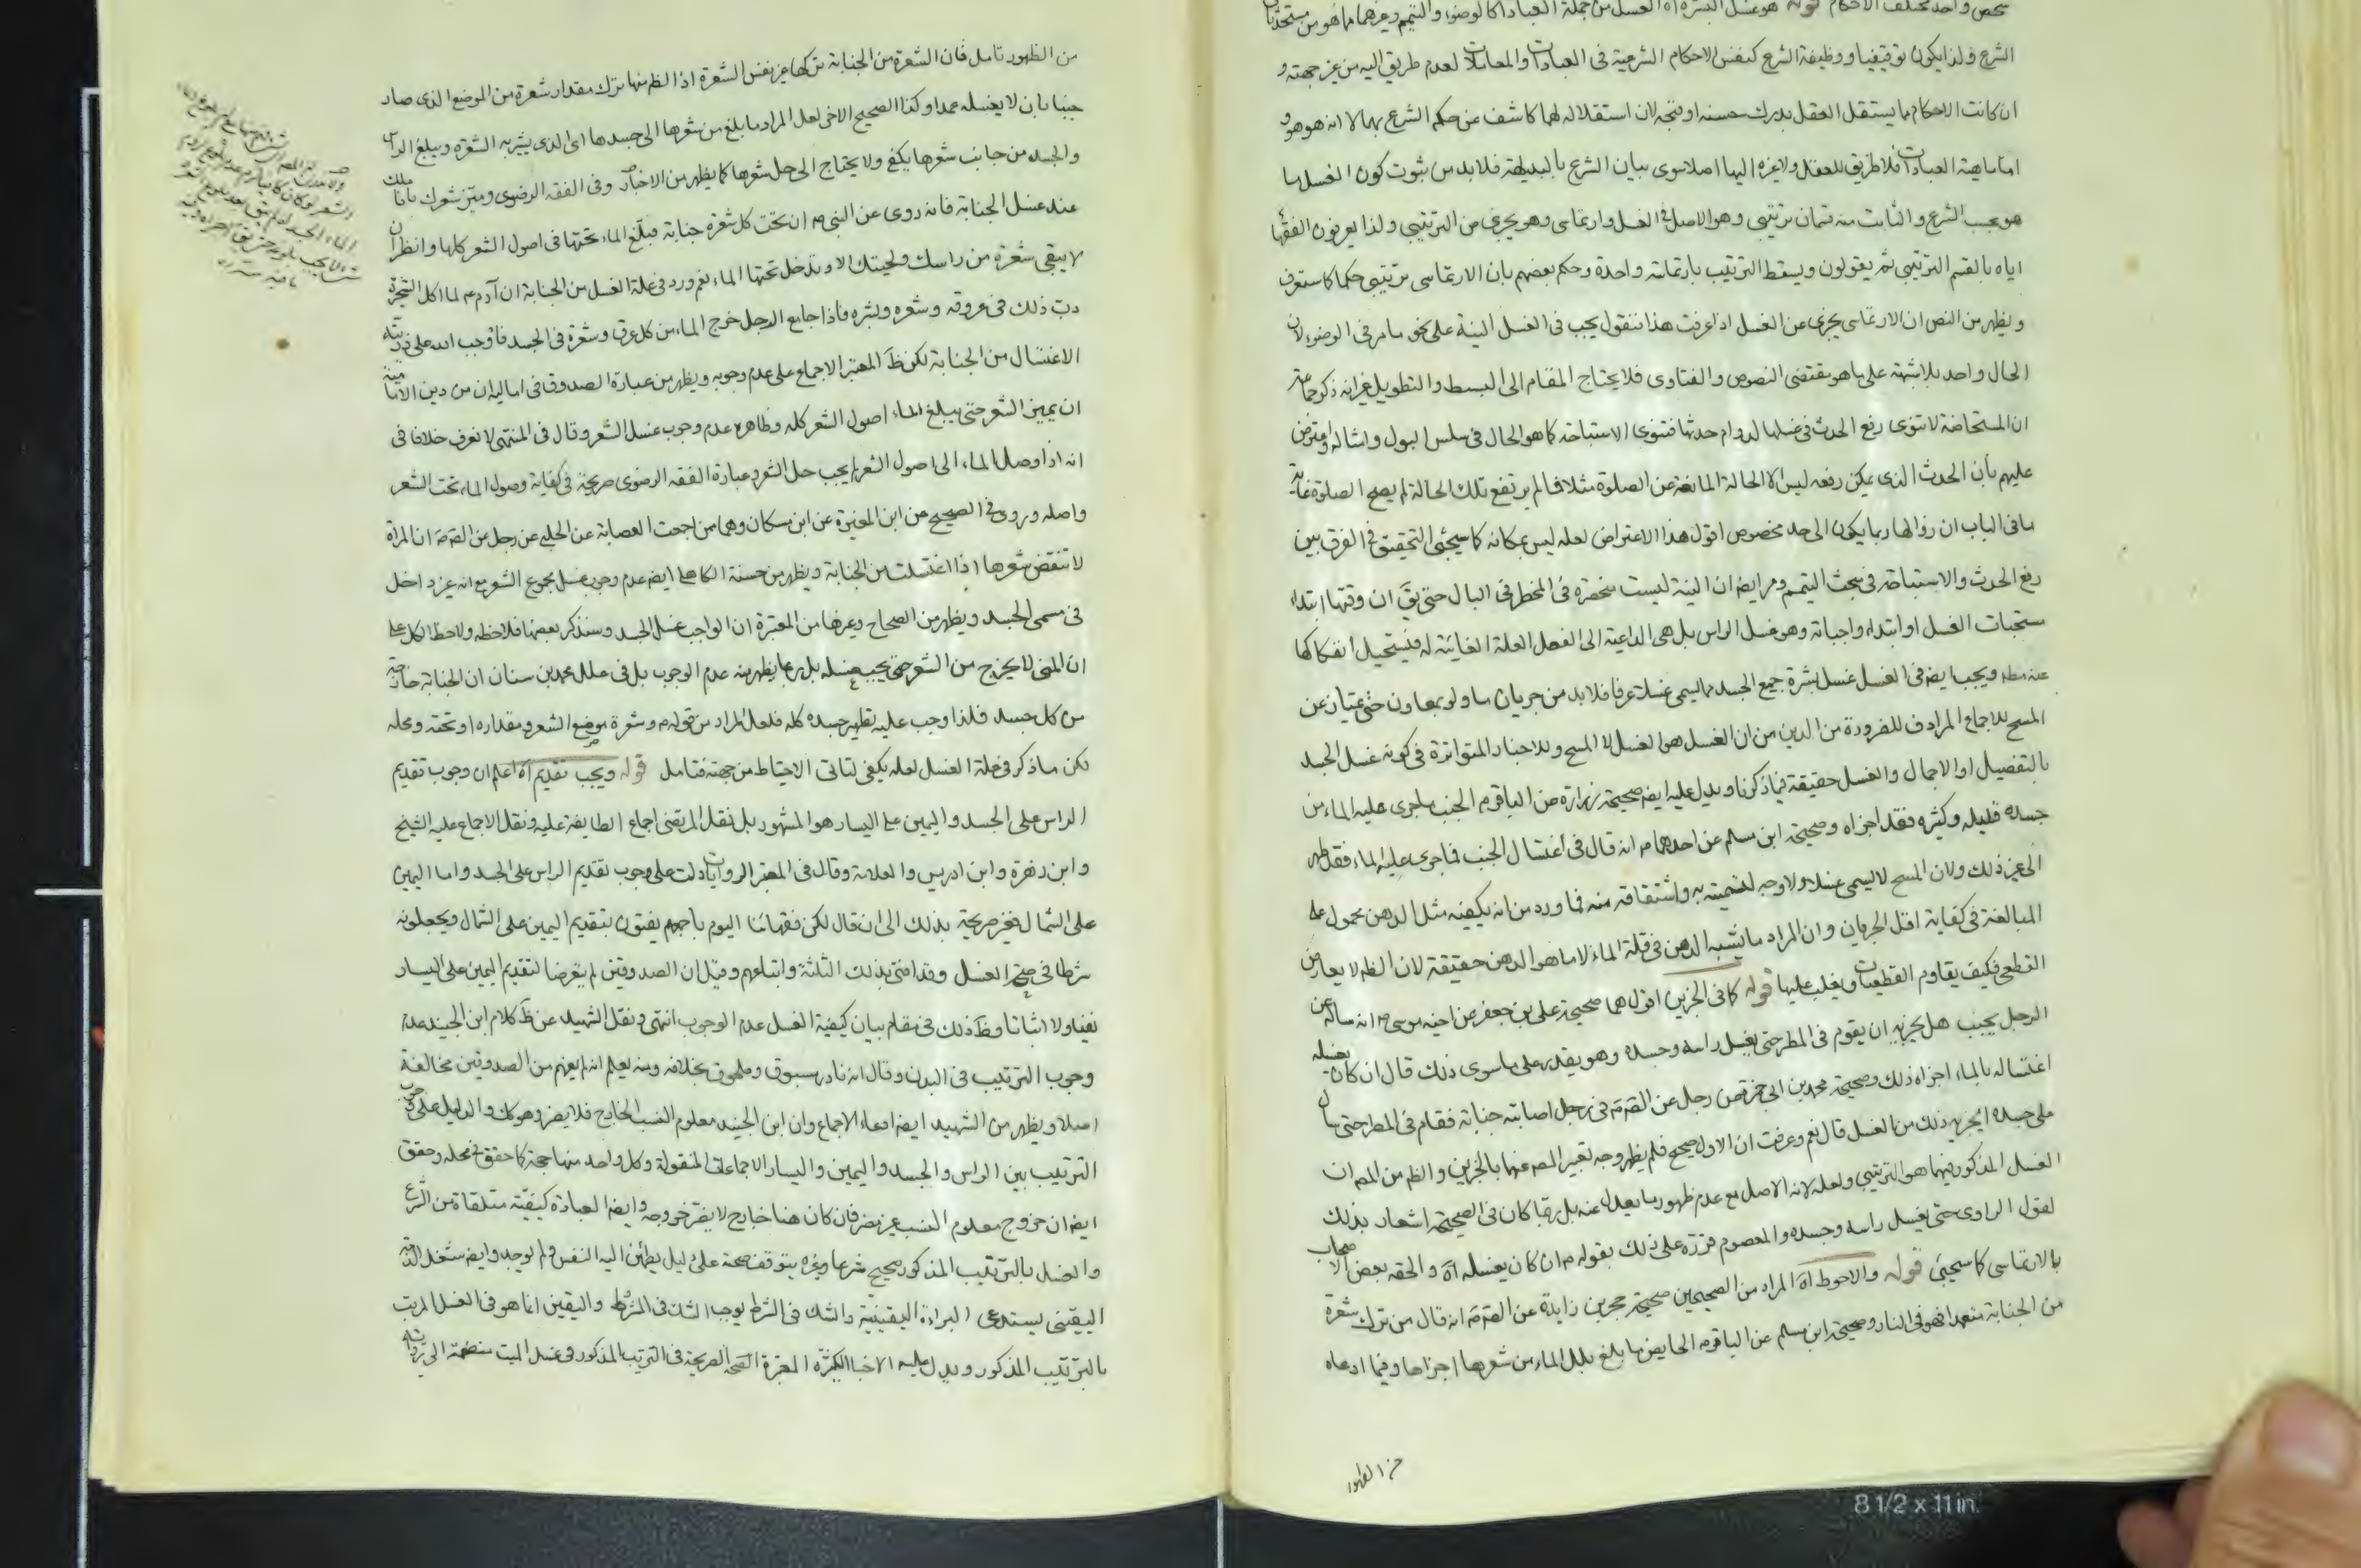 شخص واحد مختلف الاحكام قوله هو غسل البشرة اه الغسل من جملة العبادات كالوضوء والتيمم وغيرهما مما هو من مستحدثات
الشرع ولذا يكون توقيفيا ووظيفة الشرع كنفس الاحكام الشرعية في العبادات والمعاملات لعدم طريق اليه من غير جهته و
ان كانت الاحكام مما يستقل العقل بدرك حسنه او قبحه لان استقلاله لهما كاشف عن حكم الشرع بهما لا انه هو هو و
اما ماهية العبادات فلا طريق للعقل ولا غيره اليها اصلا سوى بيان الشرع بالبديهة فلا بد من ثبوت كون الغسل مما
هو بحسب الشرع والثابت منه قسمان ترتيبي وهو الاصل في الغسل وارتماسي وهو يجزي من الترتيبي ولذا يعرفون الفقهاء
اياه بالقسم الترتيبي ثم يقولون ويسقط الترتيب بارتماسة واحدة وحكم بعضهم بان الارتماسي ترتيبي حكما كما ستعرف
ويظهر من النص ان الارتماسي يجزي عن الغسل اذا عرفت هذا فنقول يجب في الغسل النية على نحو ما مر في الوضوء لان
الحال واحد بلا شبهة على ما هو مقتضى النصوص والفتاوى فلا يحتاج المقام الى البسط والتطويل غير انه ذكر جماعة
ان المستحاضة لا تنوي رفع الحدث في غسلها لدوام حدثها فتنوي الاستباحة كما هو الحال في سلس البول وامثاله واعترض
عليهم بان الحدث الذي يمكن رفعه ليس الا الحالة المانعة عن الصلوة مثلا فما لم يرتفع تلك الحالة لم يصح الصلوة غاية
ما في الباب ان زوالها ربما يكون الى حد مخصوص اقول هذا الاعتراض لعله ليس بمكانه كما سيجئ التحقيق في الفرق بين
رفع الحدث والاستباحة في مبحث التيمم ومر ايضا ان النية ليست منحصرة في المخطر في البال حتى يق ان وقتها ابتداء
مستحبات الغسل او ابتداء واجباته وهو غسل الراس بل هي الداعية الى الفعل العلة الغائية له فيستحيل انفكاكها
عنه مطه ويجب ايضه في الغسل غسل بشرة جميع الجسد مما يسمى غسلا عرفا فلا بد من جريان ما ولو بمعاون حتى يمتاز عن
المسح للاجماع المرادف للضرورة من الدين من ان الغسل هو الغسل لا المسح وللاخبار المتواترة في كونه غسل الجسد
بالتفصيل او الاجمال والغسل حقيقة فيما ذكرنا ويدل عليه ايضه صحيحة زرارة عن الباقر م الجنب ما جرى عليه الماء من
جسده قليله وكثيره فقد اجزاه وصحيحة ابن مسلم عن احدهما م انه قال في اغتسال الجنب فما جرى عليه الماء فقد طهر
الى غير ذلك ولان المسح لا يسمى غسلا ولا وجه لتسميته به واشتقاقه منه فما ورد من انه يكفيه مثل الدهن محمول على
المبالغة في كفاية اقل الجريان وان المراد ما يشبه الدهن في قلة الماء لا ما هو الدهن حقيقة لان الظه لا يعارض
القطعي فكيف يقاوم القطعيات ويغلب عليها قوله كما في الخبرين اقول هما صحيحة علي بن جعفر عن اخيه موسى م انه ساله عن
الرجل يجنب هل يجزيه ان يقوم في المطر حتى يغسل راسه وجسده وهو يقدر على ما سوى ذلك قال ان كان يغسله
اغتساله بالماء اجزاه ذلك وصحيحة محمد بن ابي حمزة عن رجل عن القه م في رجل اصابته جنابة فقام في المطر حتى سال
على جسده ايجزيه ذلك من الغسل قال نعم وعرفت ان الاول صحيح فلم يظهر وجه تعبير المصه عنهما بالخبرين والظه من المصه ان
الغسل المذكور فيهما هو الترتيبي ولعله لانه الاصل مع عدم ظهور ما يعدل عنه بل ربما كان في الصحيحة اشعار بذلك
لقول الراوي حتى يغسل راسه وجسده والمعصوم قرره على ذلك بقوله م ان كان يغسله اه والحقه بعض الاصحاب
بالارتماسي كما سيجئ قوله والاحوط اه المراد من الصحيحين صحيحة حجر بن زايدة عن القه م انه قال من ترك شعرة
من الجنابة متعمدا فهو في النار وصحيحة ابن مسلم عن الباقر م الحايض ما بلغ بلل الماء من شعرها اجزاها وفيما ادعاه
من الظهور
من الظهور تامل فان الشعرة من الجنابة تركها غير نفس الشعرة اذ الظه منها ترك مقدار شعرة من الموضع الذي صار
جنبا بان لا يغسله عمدا وكذا الصحيح الاخر لعل المراد ما بلغ من شعرها الى جسدها اي الذي يستر به الشعرة ويبلغ الراس
والجسد من جانب شعرها يكفي ولا يحتاج الى حل شعرها كما يظهر من الاخبار وفي الفقه الرضوي وميز شعرك باناملك
عند غسل الجنابة فانه روى عن النبي ص ان تحت كل شعرة جنابة فبلغ الماء تحتها في اصول الشعر كلها وانظر ان
لا يبقى شعرة من راسك ولحيتك الا وتدخل تحتها الماء نعم ورد في علة الغسل من الجنابة ان آدم ع لما اكل الشجرة
دب ذلك في عروقه وشعره وبشره فاذا جامع الرجل خرج الماء من كل عرق وشعرة في الجسد فاوجب الله على ذريته
الاغتسال من الجنابة لكن ظ المعتبر الاجماع على عدم وجوبه ويظهر من عبارة الصدوق في اماليه ان من دين الامامية
ان يميز الشعر حتى يبلغ الماء اصول الشعر كله وظاهره عدم وجوب غسل الشعر وقال في المنتهى لا نعرف خلافا في
انه اذا وصل الماء الى اصول الشعر لم يجب حل الشعر وعبارة الفقه الرضوي صريحة في كفاية وصول الماء تحت الشعر
واصله وروى في الصحيح عن ابن المغيرة عن ابن مسكان وهما ممن اجمعت العصابة عن الحلبي عن رجل عن القه م ان المراة
لا تنقض شعرها اذا اغتسلت من الجنابة ويظهر من حسنة الكاهلي ايضه عدم وجوب غسل مجموع الشعر مع انه غير داخل
في مسمى الجسد ويظهر من الصحاح وغيرها من المعتبرة ان الواجب غسل الجسد وسنذكر بعضها فلاحظه ولاحظ الكل على
ان المني لا يخرج من الشعر حتى يجب غسله بل ربما يظهر منه عدم الوجوب بل في علل محمد بن سنان ان الجنابة خارجة
من كل جسد فلذا وجب عليه تطهير جسده كله فلعل المراد من قوله م وشعرة موضع الشعر ومقداره او تحته ومحله
لكن ما ذكر في علة الغسل لعله يكفي لتاتي الاحتياط من جهته فتامل قوله ويجب تقديم اه اعلم ان وجوب تقديم
الراس على الجسد واليمين على اليسار هو المشهور بل نقل المرتضى اجماع الطايفة عليه ونقل الاجماع عليه الشيخ
وابن زهرة وابن ادريس والعلامة وقال في المعتبر الروايات دلت على وجوب تقديم الراس على الجسد واما اليمين
على الشمال فغير صريحة بذلك الى ان قال لكن فقهائنا اليوم باجمعهم يفتون بتقديم اليمين على الشمال ويجعلونه
شرطا في صحة الغسل وقد افتى بذلك الثلثة واتباعهم وقيل ان الصدوقين لم يتعرضا لتقديم اليمين على اليسار
نفيا ولا اثباتا وظ ذلك في مقام بيان كيفية الغسل عدم الوجوب انتهى ونقل الشهيد عن ظ كلام ابن الجنيد عدم
وجوب الترتيب في البدن وقال انه نادر مسبوق وملحوق بخلافه ومنه يعلم انه لم يفهم من الصدوقين مخالفة
اصلا ويظهر من الشهيد ايضه ادعاء الاجماع وان ابن الجنيد معلوم النسب الخارج فلا يضر وهو كك والدليل على وجوب
الترتيب بين الراس والجسد واليمين واليسار الاجماعات المنقولة وكل واحد منها حجة كما حقق في محله وحقق
ايضه ان خروج معلوم النسب غير مضر فان كان هنا خارج لا يضر خروجه وايضه العبادة كيفية متلقاة من الشرع
والغسل بالترتيب المذكور صحيح شرعا وغيره يتوقف صحته على دليل يطمئن اليه النفس ولم يوجد وايضه شغل الذمة
اليقيني يستدعي البراءة اليقينية والشك في الشرط يوجب الشك في المشروط واليقين انما هو في الغسل المرتب
بالترتيب المذكور ويدل عليه الاخبار الكثيرة المعتبرة الصحيحة الصريحة في الترتيب المذكور في غسل الميت منضمة الى
8 1/2 x 11 in.